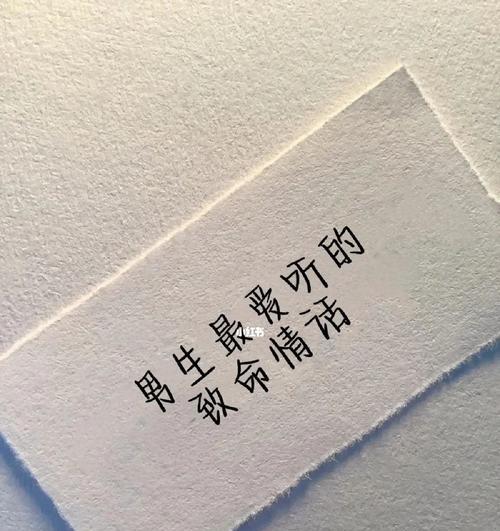 男生最爱听的
致命情话
小红书